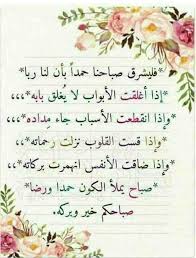 *فليشرق صباحنا حمداً بأن لنا ربا*
*إذا أغلقت الأبواب لا يُغلق بابه*،،،
*وإذا انقطعت الأسباب جاء مِداده*،،،
*وإذا قست القلوب نزلت رحماته*،،،
*وإذا ضاقت الأنفس انهمرت بركاته*
*صباح يملأ الكون حمدا ورضا*
صباحكم خير وبركه.